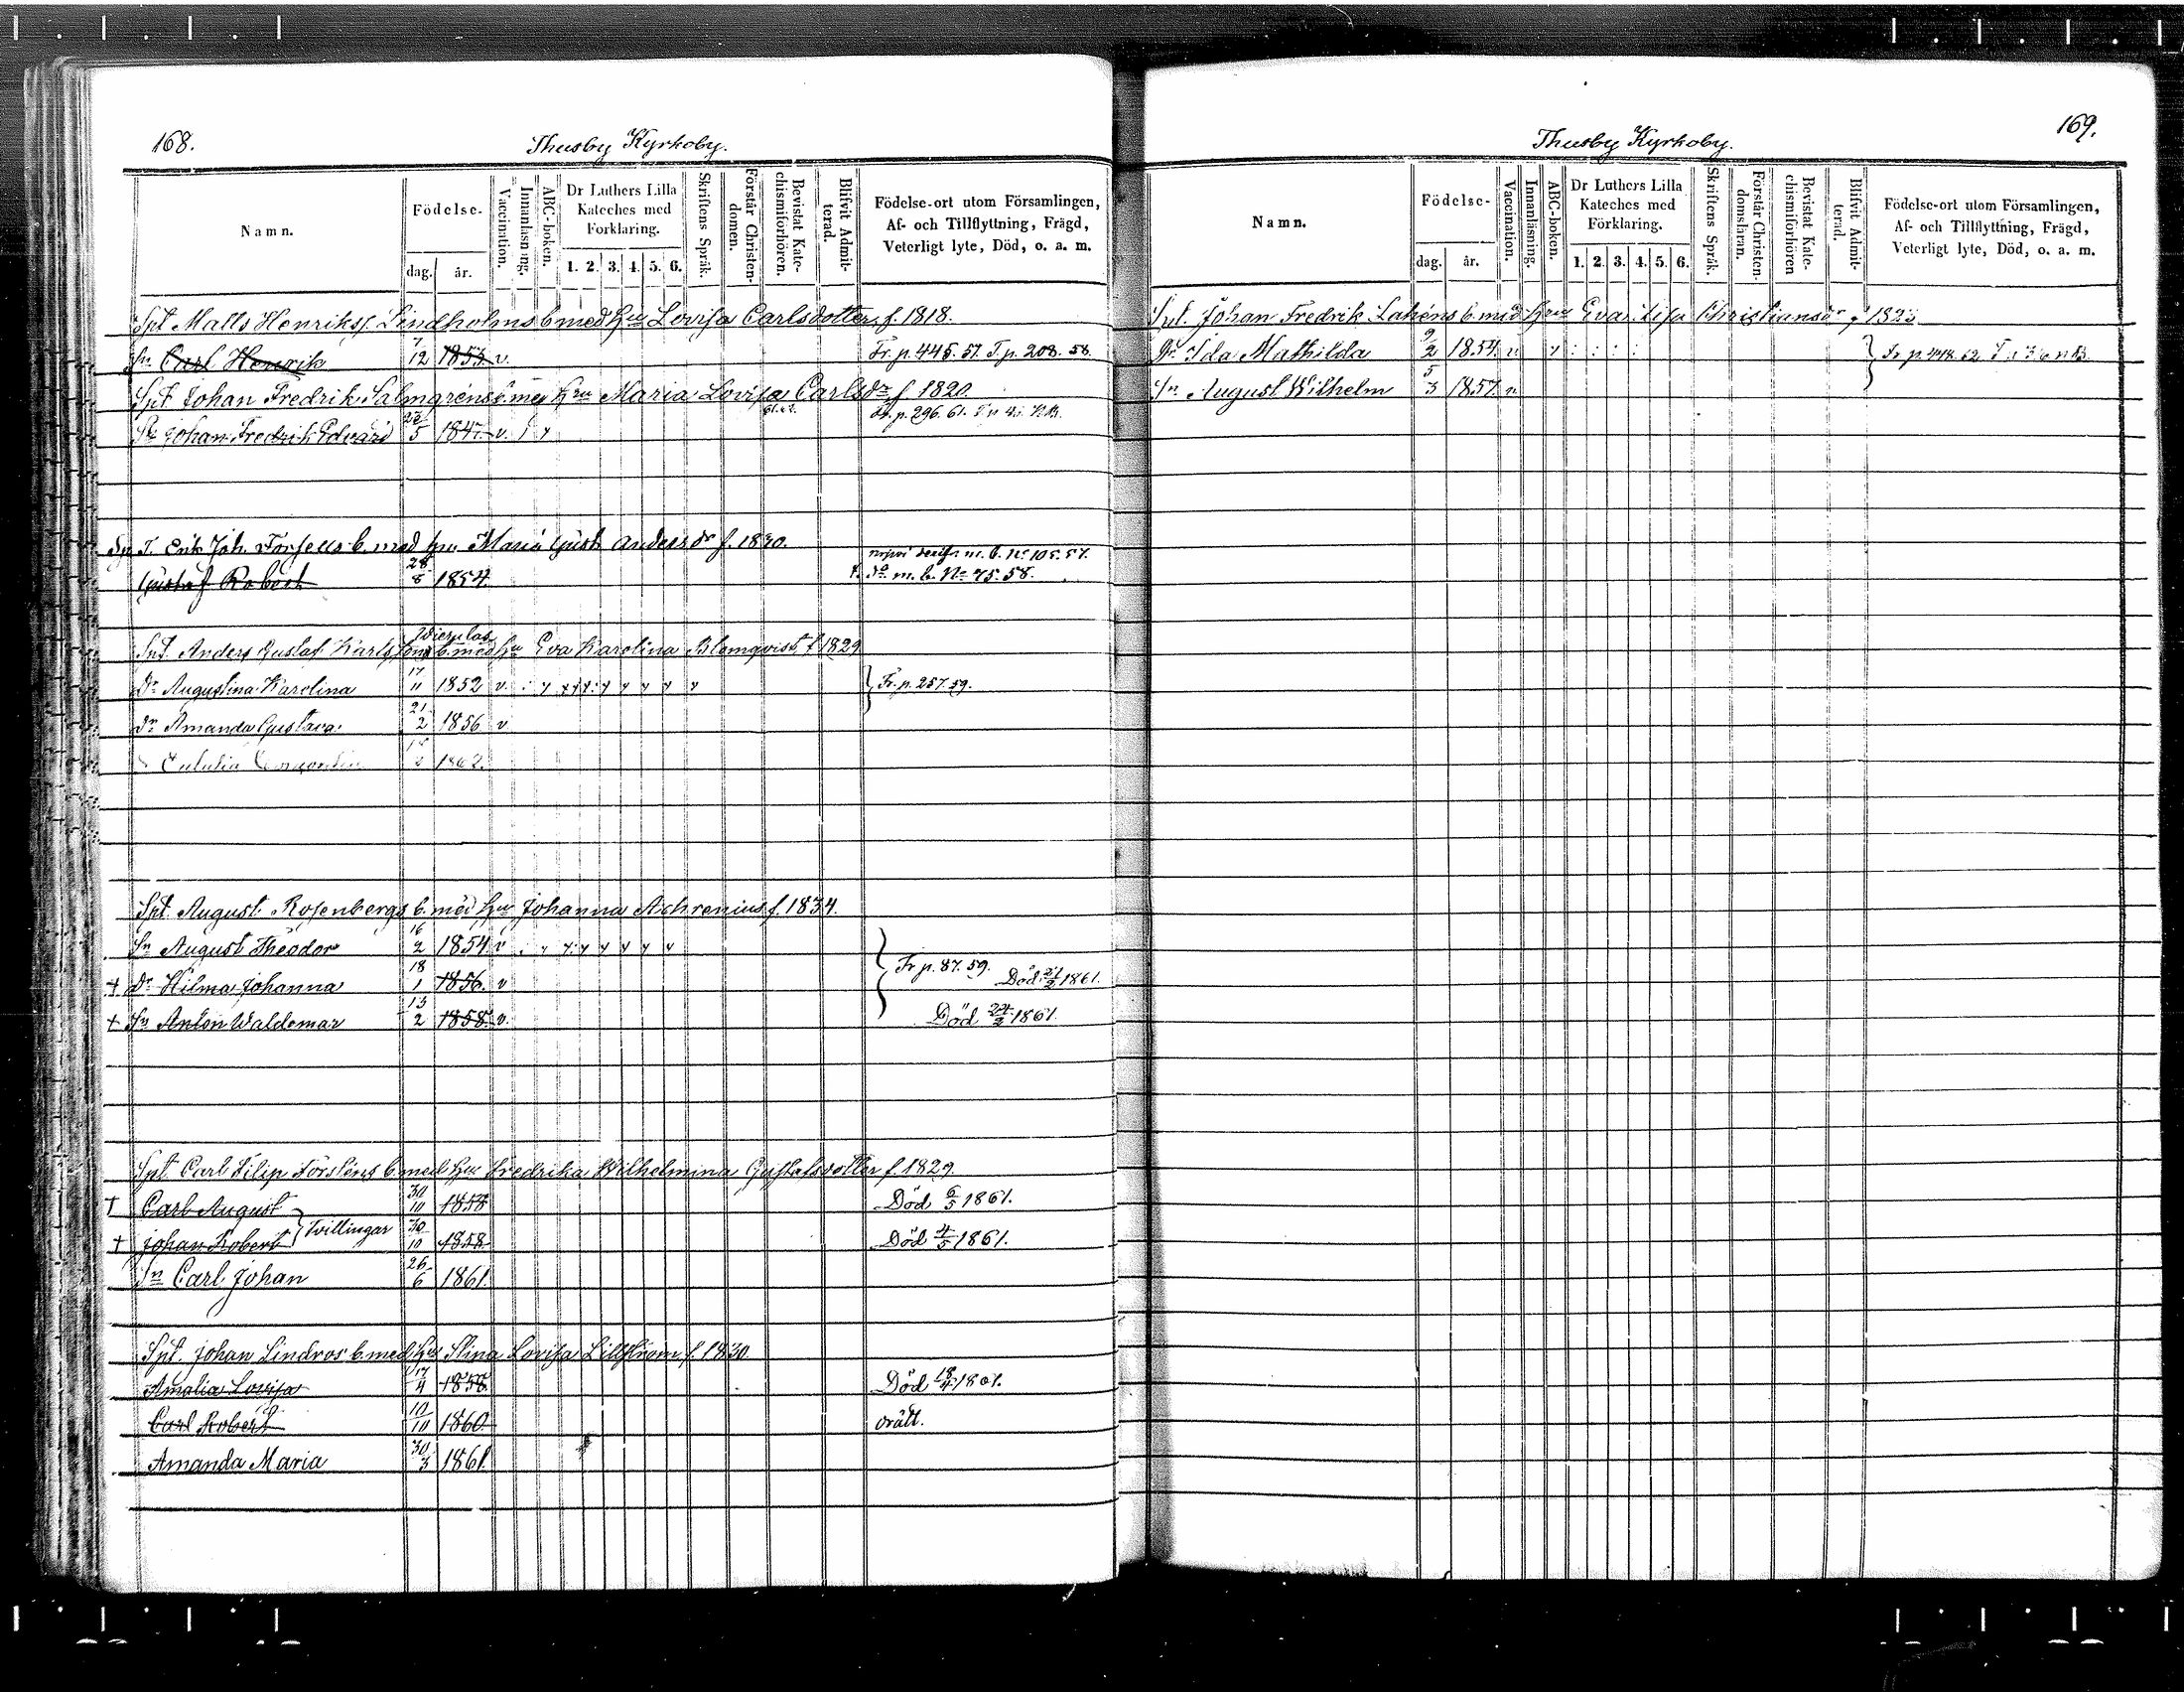 168.
Thusby Kyrkoby.
Namn.
Födelse-
dag. år.
Vaccination.
Innanläsning.
ABC-boken.
Dr Luthers Lilla Kateches med Förklaring.
1. 2. 3. 4. 5. 6.
Skriftens Språk.
Förstår Christen-domen.
Bevistat Kate-chismiförhören.
Blifvit Admit-terad.
Födelse-ort utom Församlingen,
Af- och Tillflyttning, Frägd,
Veterligt lyte, Död, o. a. m.
Spt Matts Henrikss. Lindholms b. med hu Lovisa Carlsdotter f. 1818.
Sn Carl Henrik 7/12 1853 v. Fr. p. 445. 57. T. p. 208. 58.
Spt Johan Fredrik Salmgrens b. med hu Maria Lovisa Carlsdr f. 1820.
Sn Johan Fredrik Edvard 5 1847 v. Fr. p. 296. 61.
Erik Joh. b. med hu Maria Gust. Andersdr f. 1830.
m. b. No 105. 57.
Gustaf Robert 28/8 1854 m. b. No 75. 58.
Spt. Anders Gustaf Karlssons b. med hu Eva Karolina Blomqvist f 1829
Dr Augustina Karolina 17/11 1852 v. Fr. p. 257. 59.
Dr Amanda Gustava 21/2 1856 v
1862.
Spt. August Rosenbergs b. med hu Johanna Achrenius f. 1834.
Sn August Theodor 16/2 1854 v
Fr p. 87. 59.
+ Dr Hilma Johanna 18/1 1856. v Död 21/2 1861.
+ Sn Anton Waldemar 13/2 1858. v. Död 24/2 1861.
Spt. Carl Filip Forsténs b. med hu Fredrika Wilhelmina Gustafsdotter f. 1829
+ Carl August 30/10 1858 Död 6/5 1861.
Tvillingar
+ Johan Robert 30/10 1858 Död 4/5 1861.
Sn Carl Johan 26/6 1861.
Spt. Johan Lindros b. med hu Stina Lovisa Lillström f. 1830
Amalia Lovisa 17/4 1858 Död 18/4 1861.
Carl Robert 10/10 1860 orätt.
Amanda Maria 30/3 1861.
169.
Thusby Kyrkoby.
Namn.
Födelse-
dag. år.
Vaccination.
Innanläsning.
ABC-boken.
Dr Luthers Lilla Kateches med Förklaring.
1. 2. 3. 4. 5. 6.
Skriftens Språk.
Förstår Christen-domsläran.
Bevistat Kate-chismiförhören
Blifvit Admit-terad.
Födelse-ort utom Församlingen,
Af- och Tillflyttning, Frägd,
Veterligt lyte, Död, o. a. m.
Spt. Johan Fredrik b. med hru Eva Lisa Christiansdr
Dr Ida Mathilda 9/2 1854. v
Sn August Wilhelm 5/3 1857. v